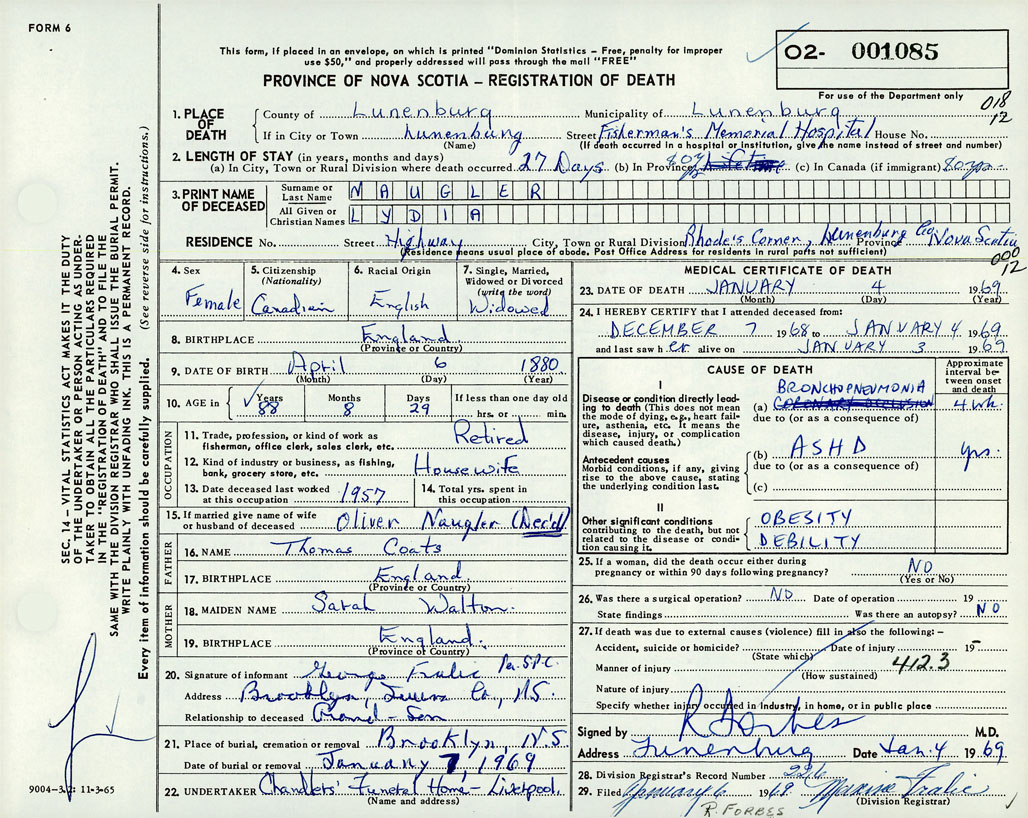 FORM 6
This form, if placed in an envelope, on which is printed "Dominion Statistics – Free, penalty for improper
use $50," and properly addressed will pass through the mail "FREE"
O2- 001085
For use of the Department only
PROVINCE OF NOVA SCOTIA – REGISTRATION OF DEATH
018
12
1. PLACE OF DEATH
County of Lunenburg Municipality of Lunenburg
If in City or Town Lunenburg Street Fisherman's Memorial Hospital House No.
(Name) (If death occurred in a hospital or institution, give the name instead of street and number)
2. LENGTH OF STAY (in years, months and days)
(a) In City, Town or Rural Division where death occurred 27 Days (b) In Province 80 yrs (c) In Canada (if immigrant) 80 yrs
3. PRINT NAME OF DECEASED
Surname or Last Name MAUGLER
All Given or Christian Names LYDIA
RESIDENCE No. Street Highway City, Town or Rural Division Rhode's Corner, Lunenburg Co Province Nova Scotia
(Residence means usual place of abode. Post Office Address for residents in rural parts not sufficient)
000
12
4. Sex
Female
5. Citizenship
(Nationality)
Canadian
6. Racial Origin
English
7. Single, Married, Widowed or Divorced
(write the word)
Widowed
8. BIRTHPLACE England
(Province or Country)
9. DATE OF BIRTH April 6 1880
(Month) (Day) (Year)
10. AGE in Years 88 Months 8 Days 29 If less than one day old hrs. or min.
OCCUPATION
11. Trade, profession, or kind of work as fisherman, office clerk, sales clerk, etc. Retired
12. Kind of industry or business, as fishing, bank, grocery store, etc. Housewife
13. Date deceased last worked at this occupation 1957
14. Total yrs. spent in this occupation
15. If married give name of wife or husband of deceased Oliver Naugler (Dec'd)
FATHER
16. NAME Thomas Coats
17. BIRTHPLACE England
(Province or Country)
MOTHER
18. MAIDEN NAME Sarah Walton.
19. BIRTHPLACE England.
(Province or Country)
20. Signature of informant George Fralic
Address Brooklyn, Queens Co., N.S.
Relationship to deceased Grand-Son
21. Place of burial, cremation or removal Brooklyn, N.S
Date of burial or removal January 7, 1969
22. UNDERTAKER Chandlers' Funeral Home - Liverpool.
(Name and address)
MEDICAL CERTIFICATE OF DEATH
23. DATE OF DEATH JANUARY 4 1969
(Month) (Day) (Year)
24. I HEREBY CERTIFY that I attended deceased from:
DECEMBER 7 1968 to JANUARY 4 1969
and last saw her alive on JANUARY 3 1969
CAUSE OF DEATH
Approximate interval between onset and death
I
Disease or condition directly leading to death (This does not mean the mode of dying, e.g., heart failure, asthenia, etc. It means the disease, injury, or complication which caused death.)
BRONCHOPNEUMONIA
(a) CORONARY OCCLUSION 4 wk.
due to (or as a consequence of)
Antecedent causes
Morbid conditions, if any, giving rise to the above cause, stating the underlying condition last.
(b) ASHD yrs.
due to (or as a consequence of)
(c)
II
Other significant conditions contributing to the death, but not related to the disease or condition causing it.
OBESITY
DEBILITY
25. If a woman, did the death occur either during pregnancy or within 90 days following pregnancy? NO
(Yes or No)
26. Was there a surgical operation? NO Date of operation 19
State findings Was there an autopsy? NO
27. If death was due to external causes (violence) fill in also the following: –
Accident, suicide or homicide? Date of injury 19
(State which)
Manner of injury 412.3
(How sustained)
Nature of injury
Specify whether injury occurred in industry, in home, or in public place
Signed by R Forbes M.D.
Address Lunenburg Date Jan. 4 1969
28. Division Registrar's Record Number 226
29. Filed January 6 1969 Maxine Fralic
(Division Registrar)
R. FORBES
SEC. 14 – VITAL STATISTICS ACT MAKES IT THE DUTY
OF THE UNDERTAKER OR PERSON ACTING AS UNDER-
TAKER TO OBTAIN ALL THE PARTICULARS REQUIRED
IN THE "REGISTRATION OF DEATH" AND TO FILE THE
SAME WITH THE DIVISION REGISTRAR WHO SHALL ISSUE THE BURIAL PERMIT.
WRITE PLAINLY WITH UNFADING INK. THIS IS A PERMANENT RECORD.
Every item of information should be carefully supplied. (See reverse side for instructions.)
11-3-65